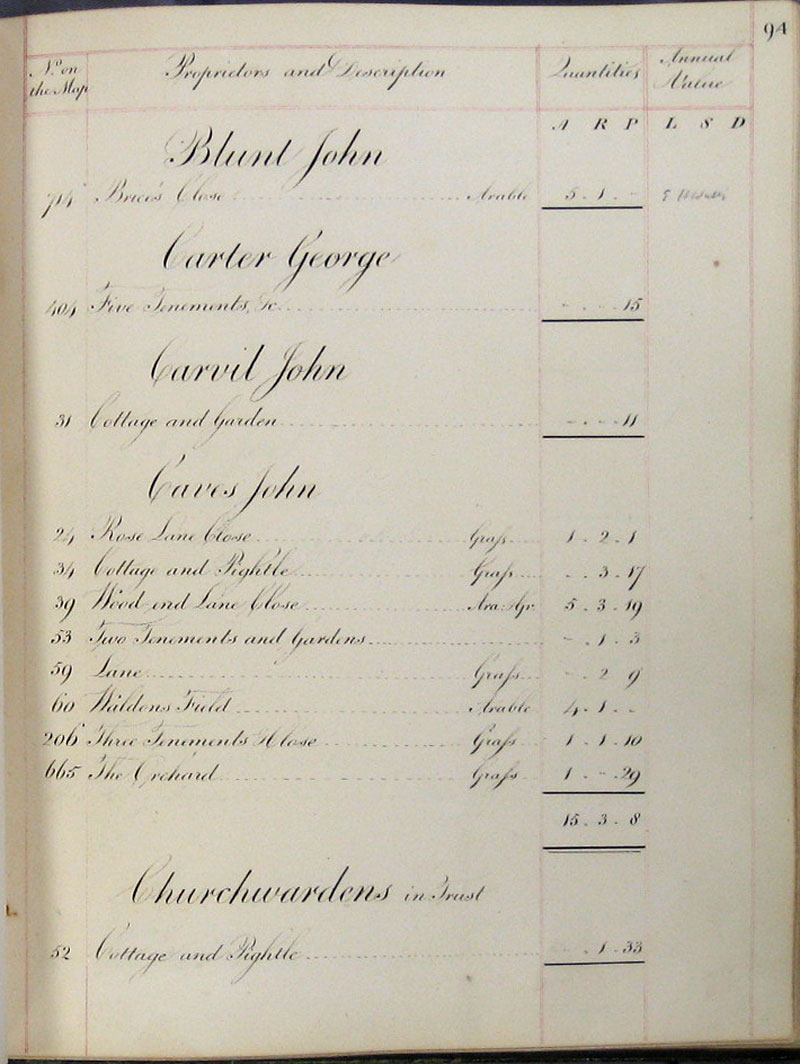 94
No. on the Map Proprietors and Description Quantities Annual Value
A R P L S D
Blunt John
714 Brice's Close Arable 5 . 1 . -
Carter George
404 Five Tenements, &c. - . - . 15
Carvil John
31 Cottage and Garden - . - . 11
Caves John
24 Rose Lane Close Graſs 1 . 2 . 1
34 Cottage and Pightle Graſs - . 3 . 17
39 Wood end Lane Close Ara: & Gr. 5 . 3 . 19
53 Two Tenements and Gardens - . 1 . 3
59 Lane Graſs - . 2 . 9
60 Waldens Field Arable 4 . 1 . -
206 Three Tenements & Close Graſs 1 . 1 . 10
665 The Orchard Graſs 1 . - . 29
15 . 3 . 8
Churchwardens in Trust
52 Cottage and Pightle - . 1 . 33